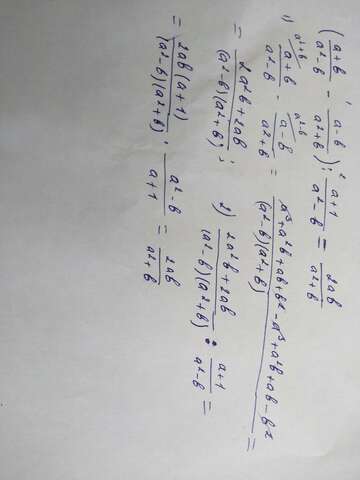 ((a+b)/(a²-b) - (a-b)/(a²+b)) : (a+1)/(a²-b) = 2ab/(a²+b)
1) (a+b)/(a²-b) - (a-b)/(a²+b) = (a³+a²b+ab+b²-a³+a²b+ab-b²)/((a²-b)(a²+b)) =
= (2a²b+2ab)/((a²-b)(a²+b)) ;
2) (2a²b+2ab)/((a²-b)(a²+b)) : (a+1)/(a²-b) =
= 2ab(a+1)/((a²-b)(a²+b)) · (a²-b)/(a+1) = 2ab/(a²+b)